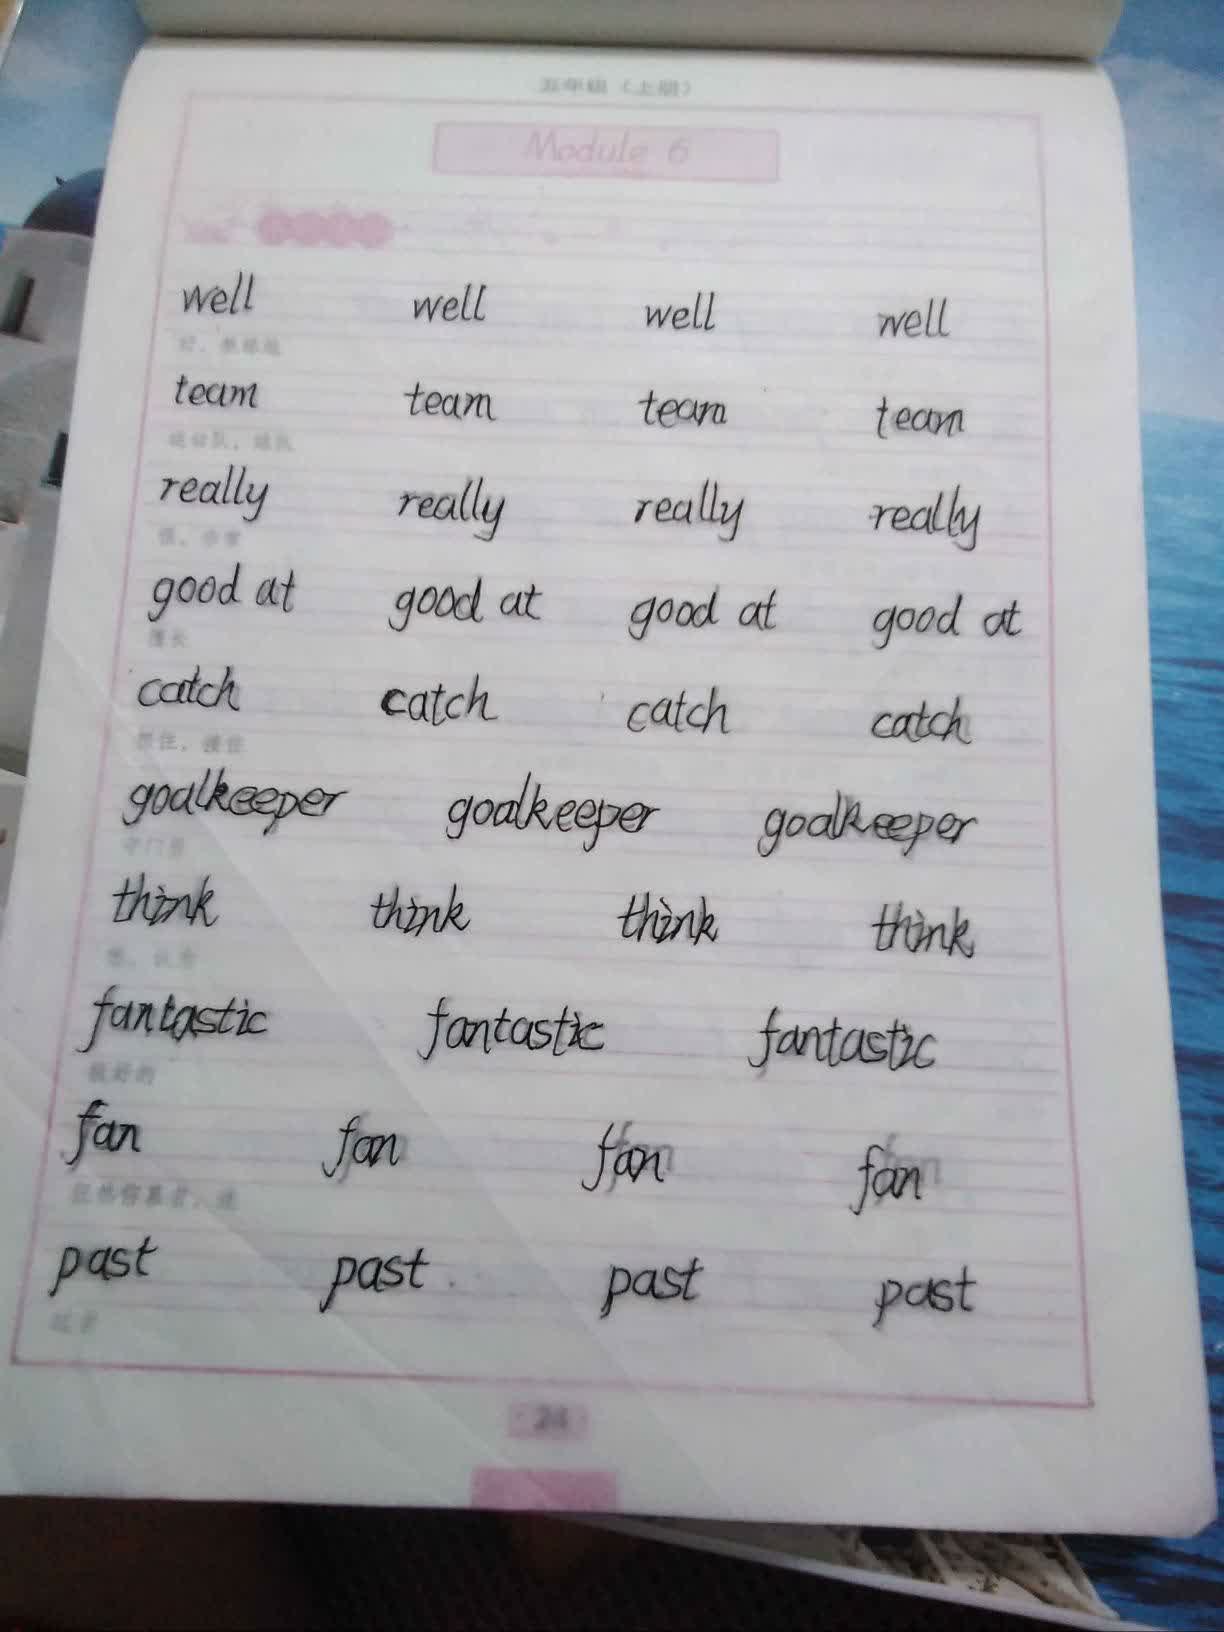 五年级（上册）
Module 6
well well well well
team team team team
really really really really
good at good at good at good at
擅长
catch catch catch catch
抓住，接住
goalkeeper goalkeeper goalkeeper
守门员
think think think think
想，认为
fantastic fantastic fantastic
极好的
fan fan fan fan
past past past past
24